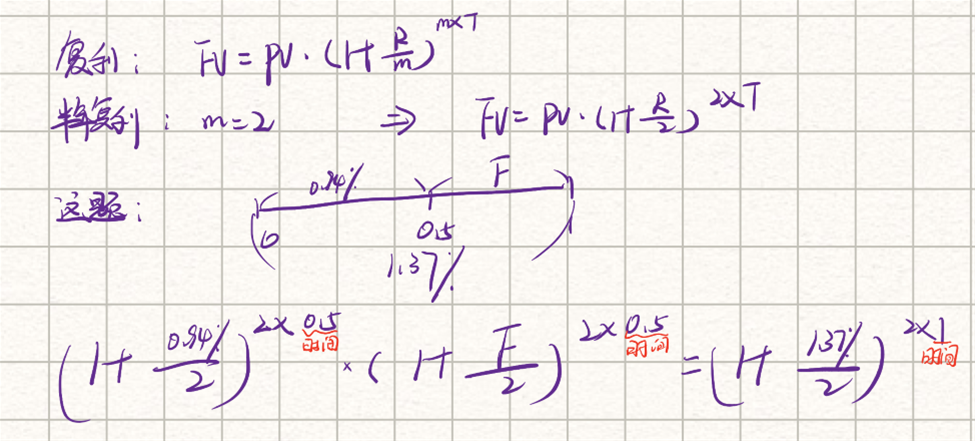 复利: FV = PV · (1+R/m)^(m×T)
半年复利: m=2 ⇒ FV = PV · (1+R/2)^(2×T)
0.94% F
这题:
0 0.5 1
1.37%
(1+0.94%/2)^(2×0.5) × (1+F/2)^(2×0.5) = (1+1.37%/2)^(2×1)
时间 时间 时间